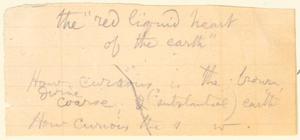 the "red liquid heart
of the earth"
How curious is the brown
divine
coarse & (substantial) earth
How curious the s